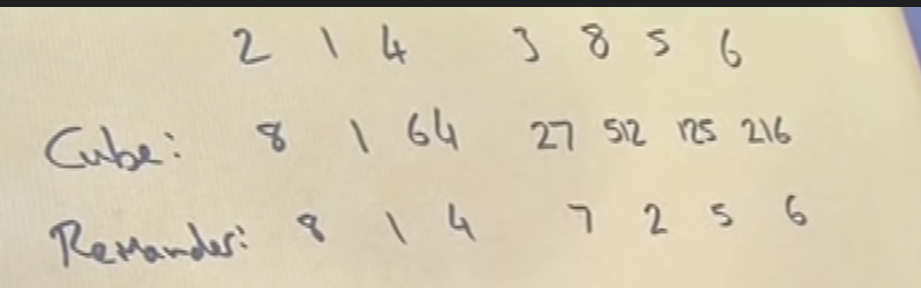 2 1 4 3 8 5 6
Cube: 8 1 64 27 512 125 216
Remainder: 8 1 4 7 2 5 6